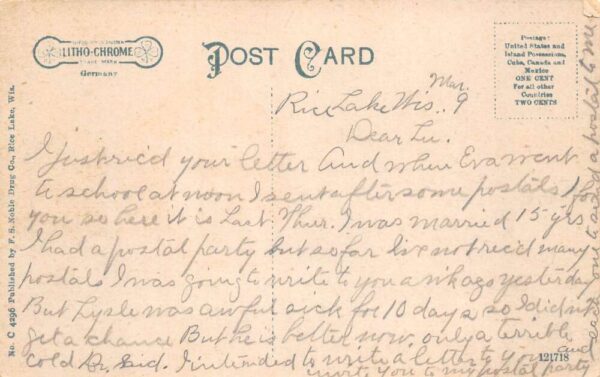 LITHO-CHROME
TRADE MARK
Germany
POST CARD
Postage:
United States and
Island Possessions,
Cuba, Canada and
Mexico
ONE CENT
For all other
Countries
TWO CENTS
No. C 4296 Published by F. S. Noble Drug Co., Rice Lake, Wis.
Rice Lake Wis. Mar. 9
Dear Lu.
I just rec'd your letter And when Eva went
to school at noon I sent after some postals, for
you so here it is Last Thur. I was married 15 yrs
I had a postal party but so far I've not rec'd many
postals I was going to write to you a wk ago yesterday
But Lysle was awful sick for 10 days so I didn't
get a chance But he is better now. only a terrible
cold Dr. said. I intended to write a letter to you and
invite you to my postal party
each one to send a postal to me
121718